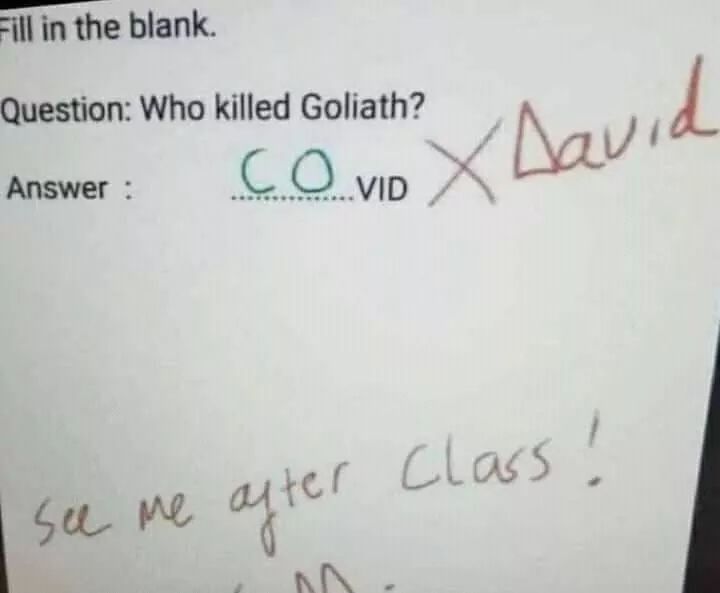 Fill in the blank.
Question: Who killed Goliath?
Answer : CO VID X David
See me after Class!